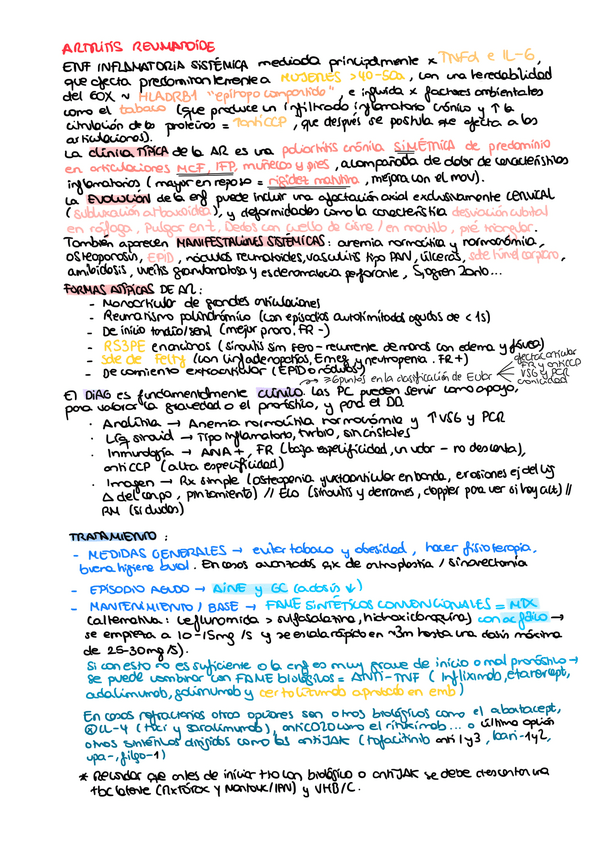 ARTRITIS REUMATOIDE
ENF INFLAMATORIA SISTÉMICA mediada principalmente x TNFα e IL-6,
que afecta predominantemente a MUJERES >40-50a, con una heredabilidad
del 60% ~ HLADRB1 "epítopo compartido", e influida x factores ambientales
como el tabaco (que produce un infiltrado inflamatorio crónico y ↑ la
citrulinación de las proteínas = ↑antiCCP, que después se postula que afecta a las
articulaciones).
La clínica TÍPICA de la AR es una poliartritis crónica SIMÉTRICA de predominio
en articulaciones MCF, IFP, muñecas y pies, acompañada de dolor de características
inflamatorias (mayor en reposo = rigidez matutina, mejora con el mov).
La EVOLUCIÓN de la enf puede incluir una afectación axial exclusivamente CERVICAL
(subluxación atloaxoidea), y deformidades como la característica desviación cubital
en ráfaga, Pulgar en Z, Dedos con cuello de cisne / en martillo, pie triangular.
También aparecen MANIFESTACIONES SISTÉMICAS: anemia normocítica y normocrómica,
osteoporosis, EPID, nódulos reumatoides, vasculitis tipo PAN, úlceras, sde túnel carpiano,
amiloidosis, uveítis granulomatosa y escleromalacia perforante, Sjögren 2ario...
FORMAS ATÍPICAS DE AR:
- Monoarticular de grandes articulaciones
- Reumatismo palindrómico (con episodios autolimitados agudos de < 1s)
- De inicio tardío/senil (mejor prono. FR -)
- RS3PE en ancianos (sinovitis sim sero- recurrente de manos con edema y fóvea)
- Sde de Felty (con linfadenopatías, Emeg y neutropenia. FR+)
- De comienzo extraarticular (EPID o nódulos)
→ ≥6 puntos en la clasificación de Eular
afectac articular
FR y antiCCP
VSG y PCR
cronicidad
El DIAG es fundamentalmente clínico. Las PC pueden servir como apoyo,
para valorar la gravedad o el pronóstico, y para el DD.
· Analítica → Anemia normocítica normocrómica y ↑VSG y PCR
· Líq sinovial → Tipo inflamatorio, turbio, sin cristales
· Inmunología → ANA+, FR (baja especificidad, un valor - no descarta),
antiCCP (alta especificidad)
· Imagen → Rx simple (osteopenia yuxtaarticular en banda, erosiones ej del lig
Δ del carpo, pinzamiento) // Eco (sinovitis y derrames, doppler para ver si hay act) //
RM (si dudas)
TRATAMIENTO:
- MEDIDAS GENERALES → evitar tabaco y obesidad, hacer fisioterapia,
buena higiene bucal. En casos avanzados qx de artroplastia / sinovectomía
- EPISODIO AGUDO → AINE y GC (a dosis ↓)
- MANTENIMIENTO / BASE → FAME SINTÉTICOS CONVENCIONALES = MTX
(alternativa: Leflunomida > sulfasalazina, hidroxicloroquina) con ac fólico →
se empieza a 10-15mg /s y se escala rápido en ~3m hasta una dosis máxima
de 25-30mg /s).
Si con esto no es suficiente o la enf es muy grave de inicio o mal pronóstico →
se puede combinar con FAME biológicos = ANTI-TNF (Infliximab, etanercept,
adalimumab, golimumab y certolizumab aprobado en emb)
En casos refractarios otras opciones son otros biológicos como el abatacept,
⊗IL-4 (toci y sarilumab), antiCD20 como el rituximab... o última opción
otros sintéticos dirigidos como los antiJAK (tofacitinib anti 1 y 3, bari- 1 y 2,
upa-, filgo-1)
* Recordar que antes de iniciar tto con biológico o antiJAK se debe descartar una
tbc latente (Rx Tórax y Mantoux/IGRA) y VHB/C.